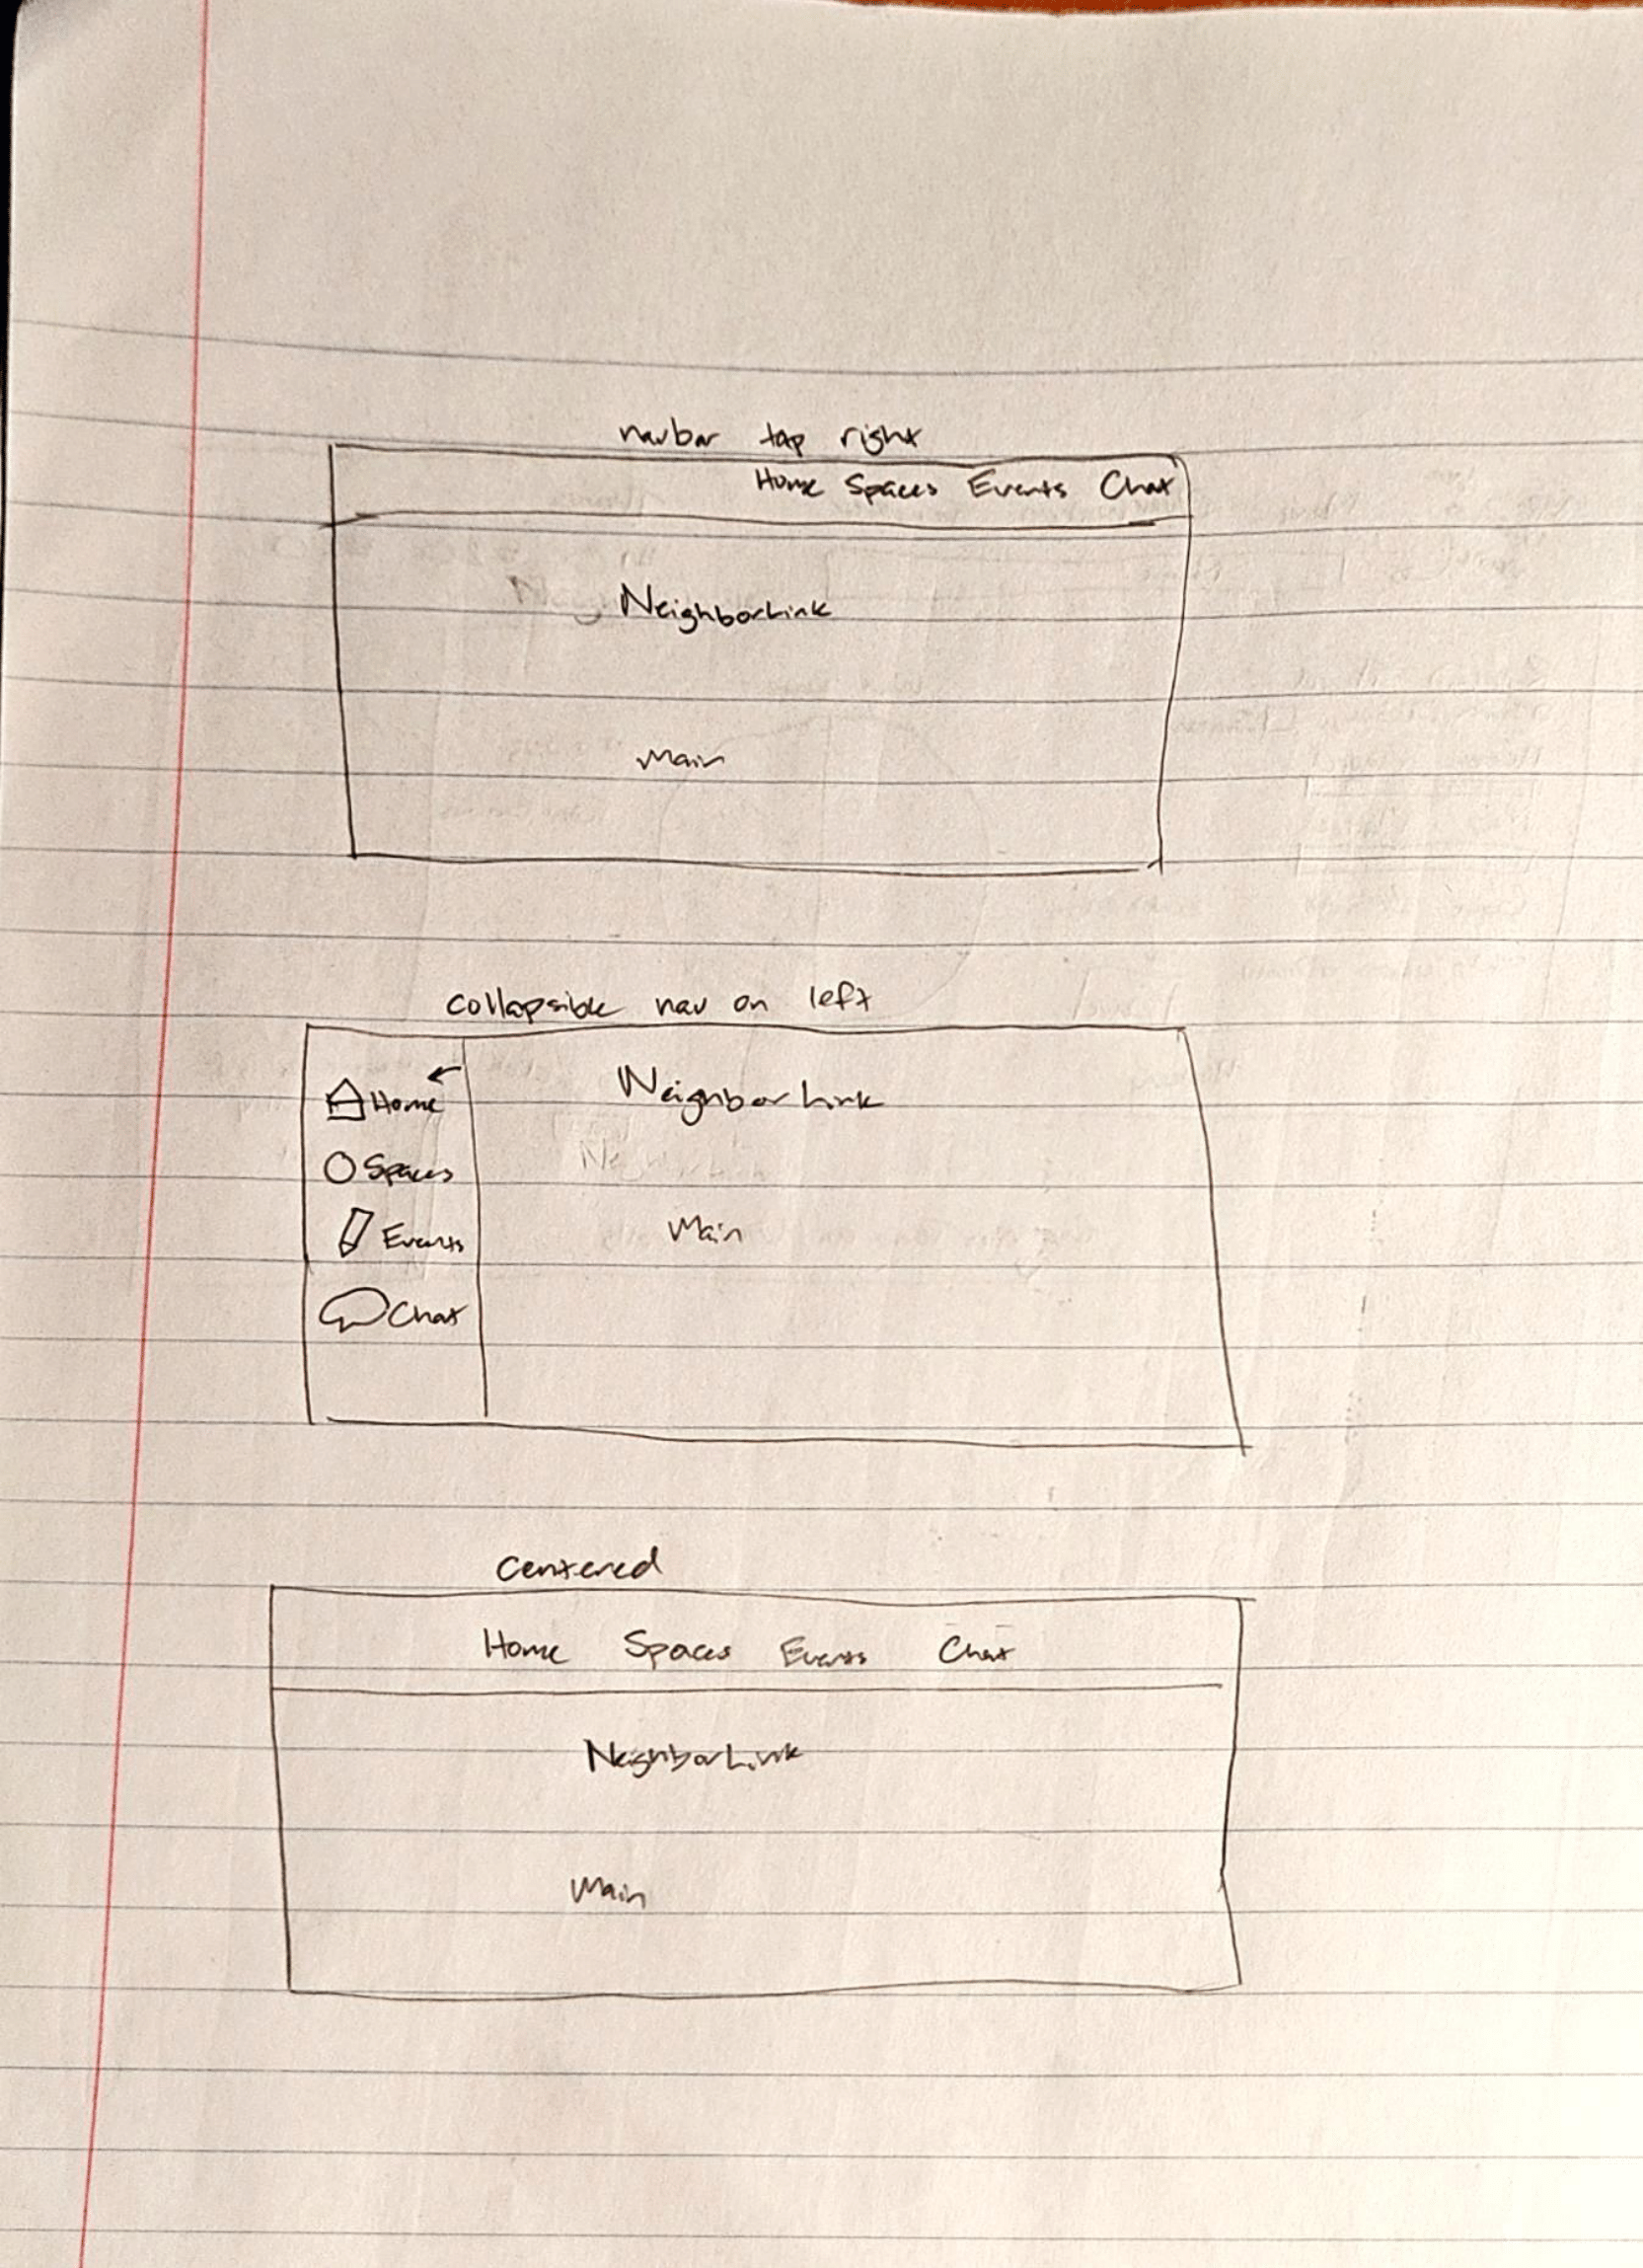 navbar top right
Home Spaces Events Chat
NeighborLink
Main
collapsible nav on left
Home
NeighborLink
Spaces
Events
Main
Chat
Centered
Home Spaces Events Chat
NeighborLink
Main